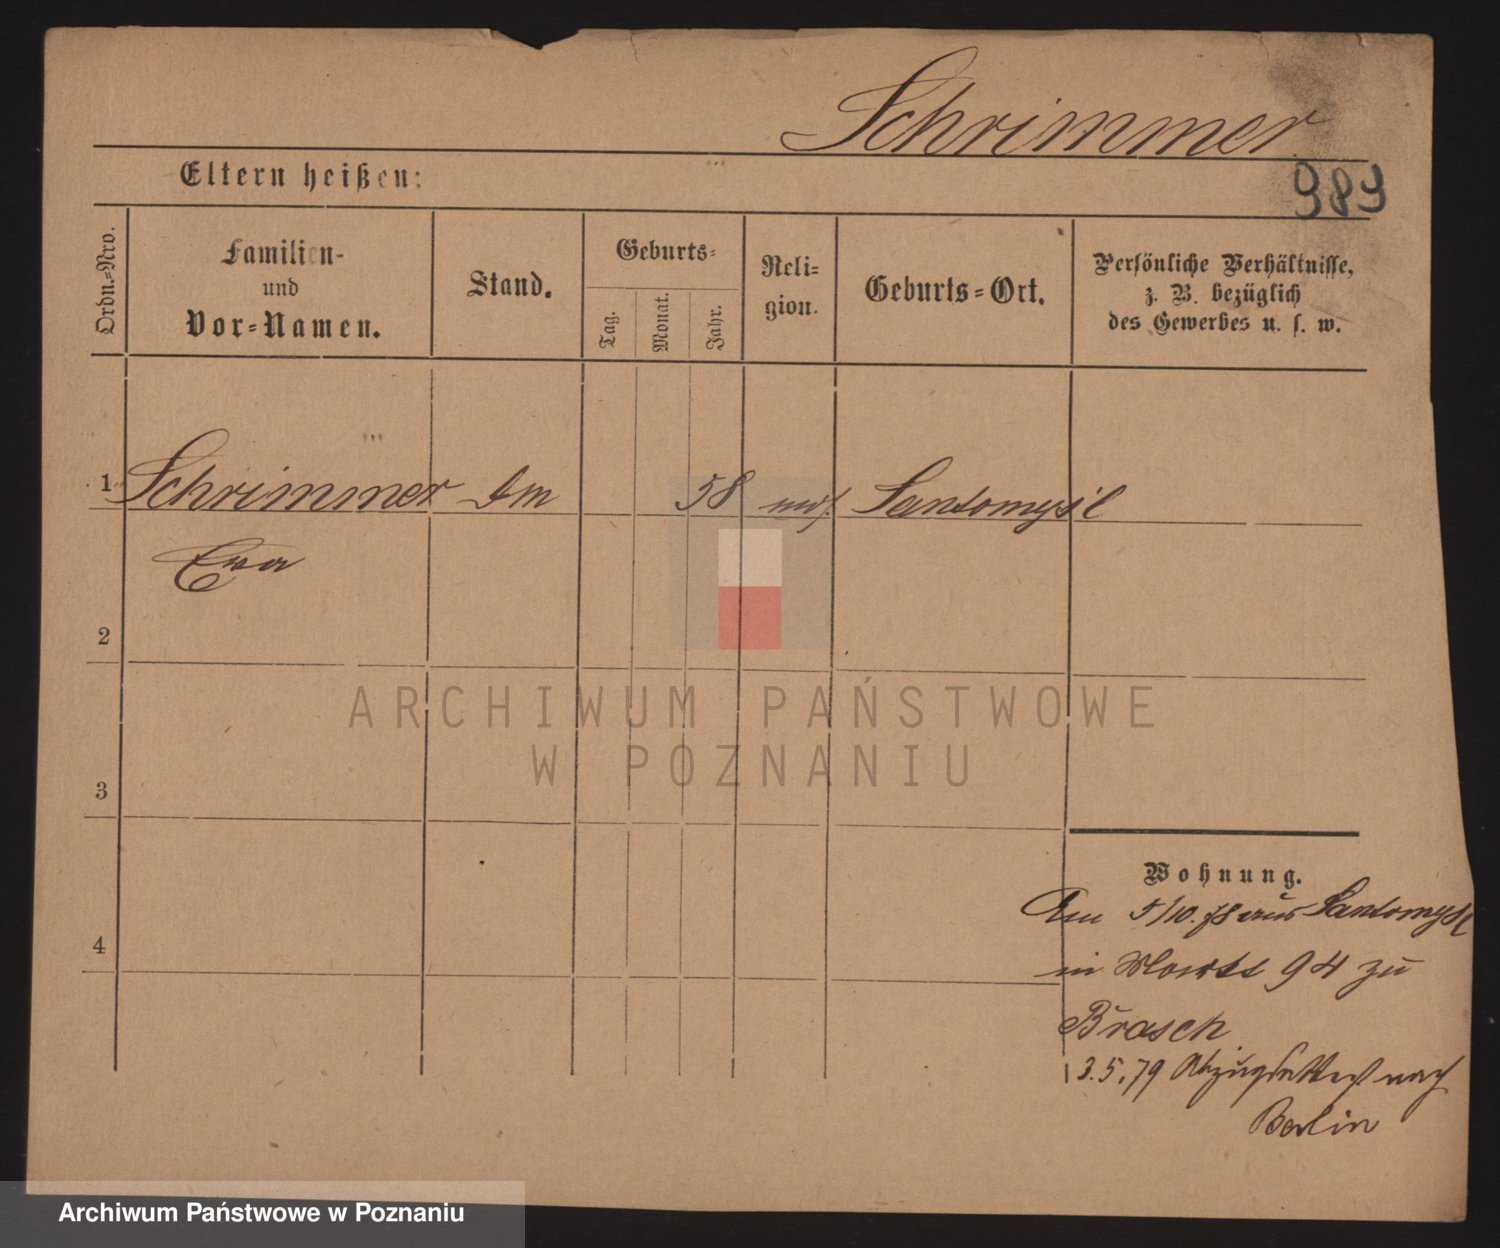 Schrimmer
989
Eltern heißen:
Ordn.=Nro.
Familien-
und
Vor=Namen.
Stand.
Geburts=
Tag.
Monat.
Jahr.
Reli=
gion.
Geburts=Ort.
Persönliche Verhältnisse,
z. B. bezüglich
des Gewerbes u. s. w.
1 Schrimmer 58 Santomysl
Eva
2
ARCHIWUM PAŃSTWOWE
W POZNANIU
3
Wohnung.
Am 5/10.78 aus Santomysl
4
in 94 zu
Brasch
3.5.79 Abzugsattest nach
Berlin
Archiwum Państwowe w Poznaniu